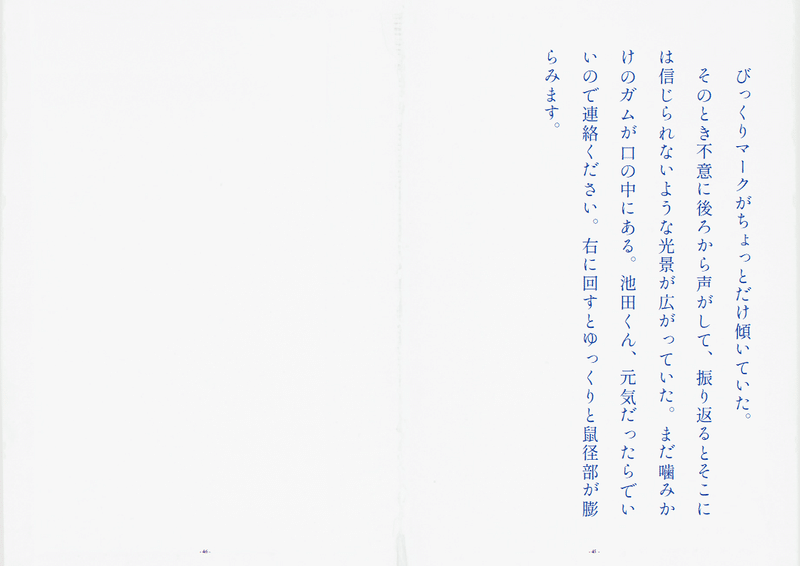 びっくりマークがちょっとだけ傾いていた。
そのとき不意に後ろから声がして、振り返るとそこに
は信じられないような光景が広がっていた。まだ噛みか
けのガムが口の中にある。池田くん、元気だったらでい
いので連絡ください。右に回すとゆっくりと鼠径部が膨
らみます。